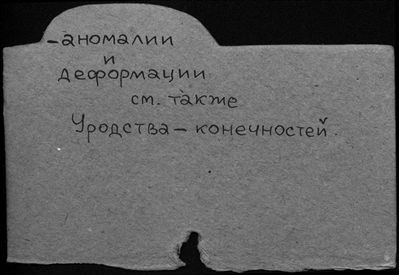 -аномалии
и
деформации
см. также
Уродства - конечностей.